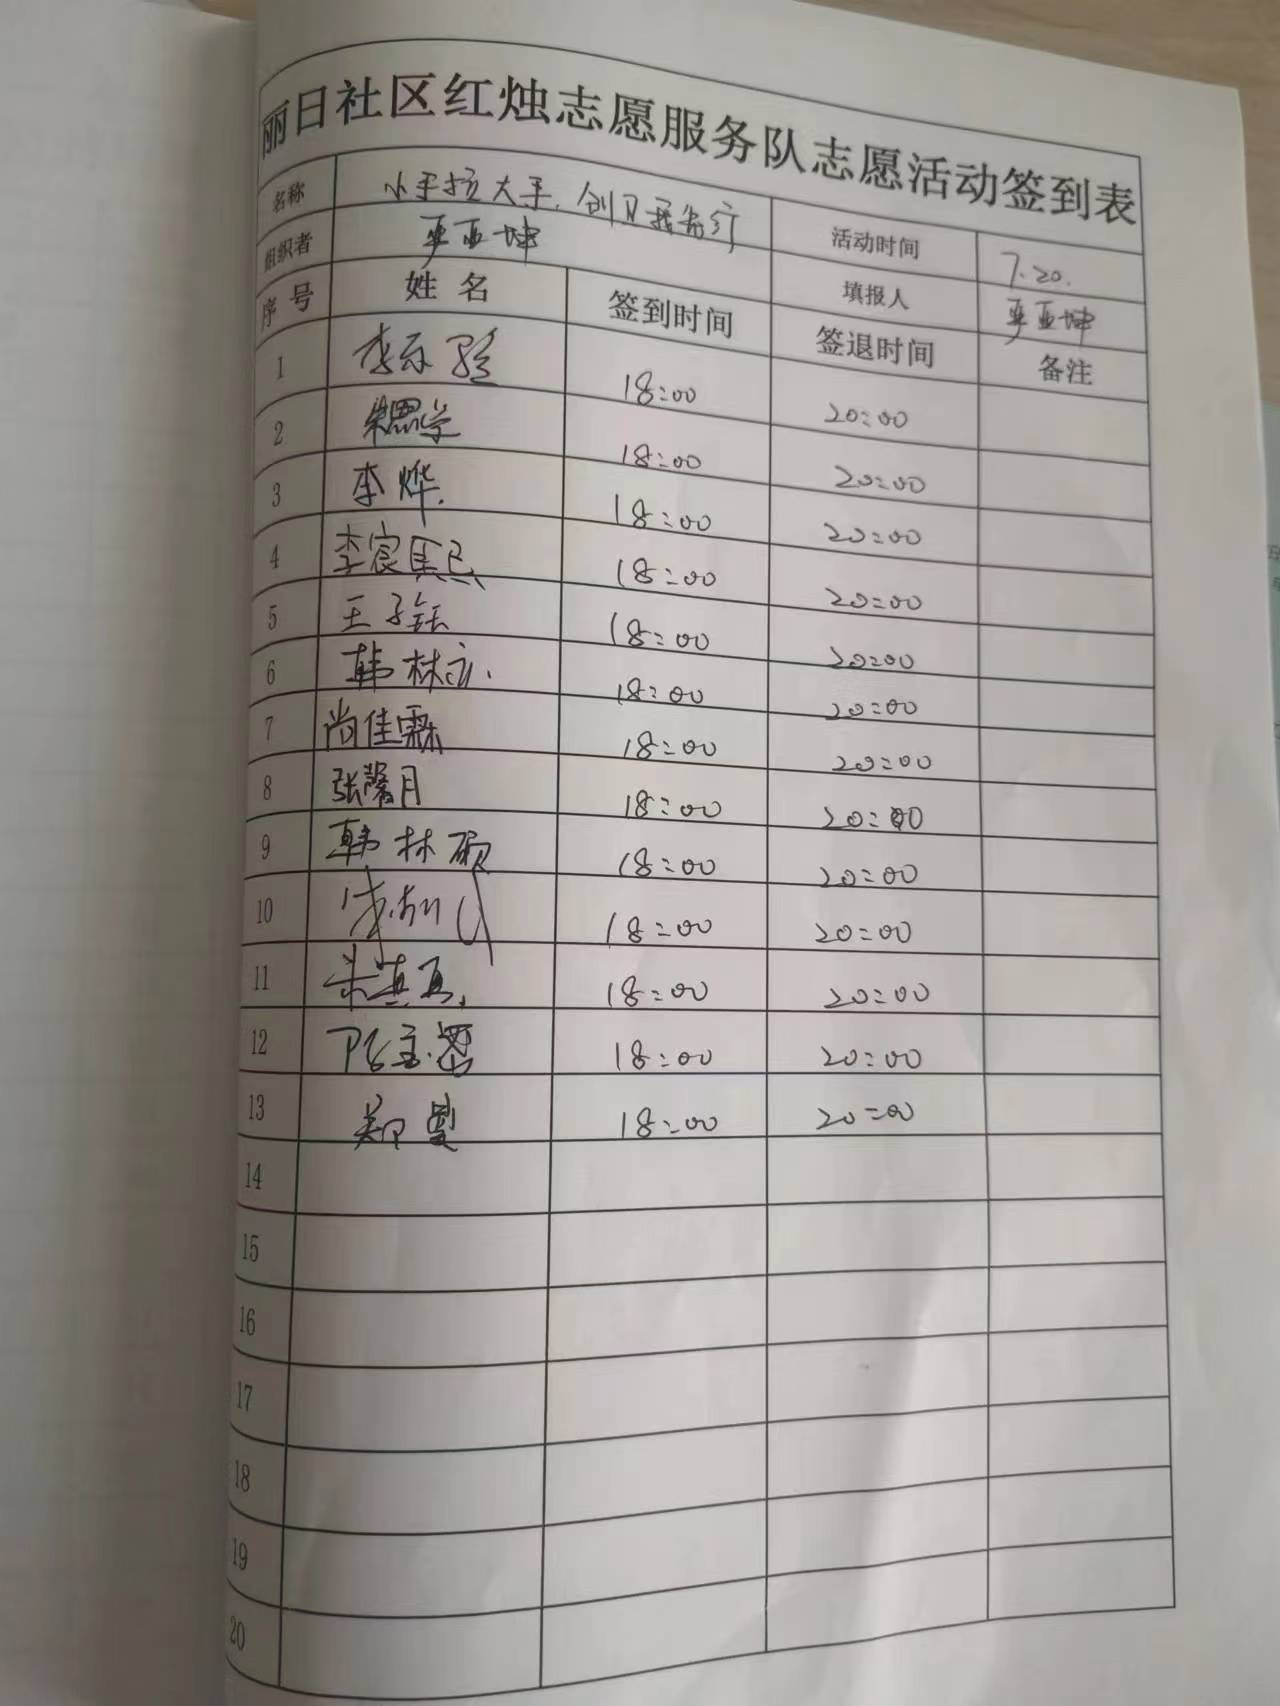 丽日社区红烛志愿服务队志愿活动签到表
名称 小手拉大手，创卫我先行 活动时间 7.20.
组织者 亚坤 填报人 亚坤
序号 姓名 签到时间 签退时间 备注
1 李 18:00 20:00
2 朱思学 18:00 20:00
3 李烨. 18:00 20:00
4 李宸 18:00 20:00
5 王子钰 18:00 20:00
6 韩林 18:00 20:00
7 尚佳霖 18:00 20:00
8 张馨月 18:00 20:00
9 韩林硕 18:00 20:00
10 18:00 20:00
11 18:00 20:00
12 18:00 20:00
13 郑 18:00 20:00
14
15
16
17
18
19
20